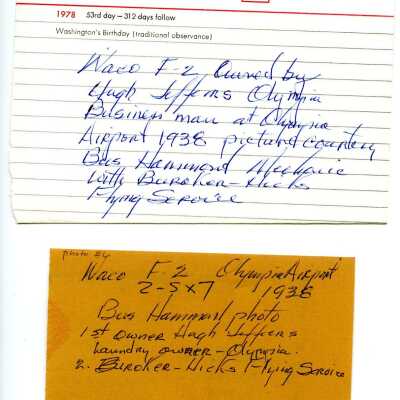 1978 53rd day — 312 days follow
Washington's Birthday (traditional observance)
Waco F-2 Owned by
Hugh Jeffers Olympia
Business man at Olympia
Airport 1938 picture courtesy
Bus Hammond Mechanic
with Buroker-Hicks
Flying Service
photo by
Waco F-2 Olympia Airport
2-5x7 1938
Bus Hammond photo
1st owner Hugh Jeffers
Laundry owner - Olympia.
2. Buroker-Hicks Flying Service